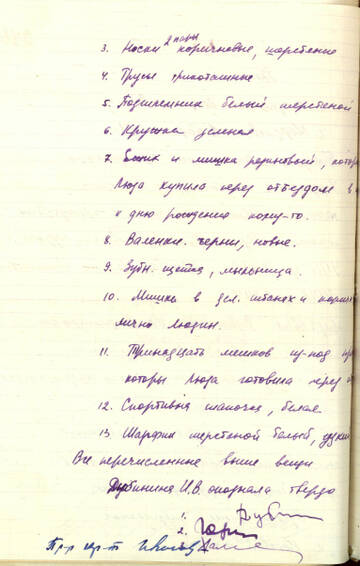 2 пары
3. Носки коричновые, шерстеные
4. Трусы трикоташные
5. Подшлемник белый шерстеной
6. Кружка зеленая
7. и мишка резиновый, кото
Люда купила перед отъездом в
к дню рождения кому-то.
8. Валенки черны, новые.
9. Зубн. щетка, мыльница.
10. Мишка в зел. штанах и
лично Людин.
11. Тринадцать мешков из-под
которы Люда готовила через
12. Спортивная шапочка, белая
13. Шарфик шерстеной белый,
Все перечисленные выше вещи
Дубинина И.В. опознала твердо
1. Дуби
2.
3.
Пр-р кр-т